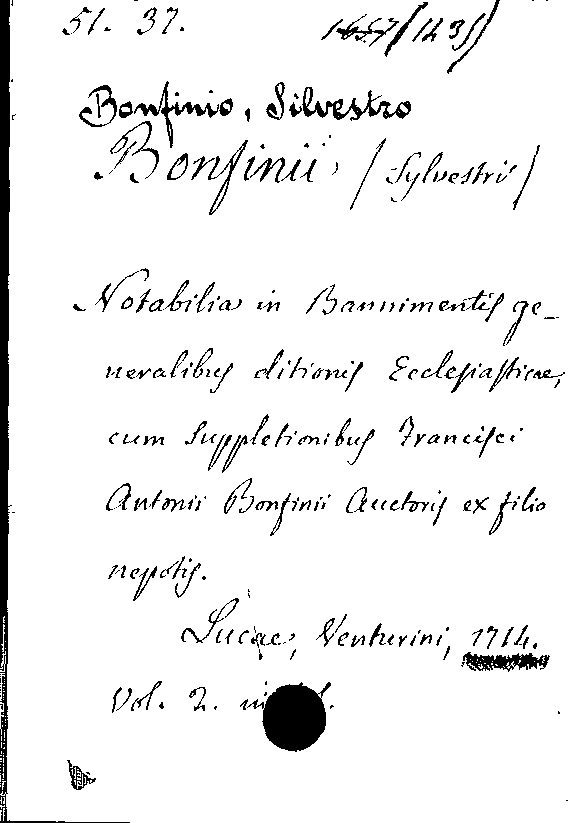 51. 37.
1657 (123)
Bonfinio, Silvestro
Bonfinii, (Sylvestri)
Notabilia in Bannimentis ge-
neralibus ditionis Ecclesiasticae,
cum Suppletionibus Francisci
Antonii Bonfinii Auctoris ex filio
nepotis.
Lucae, Venturini, 1714.
Vol. 2.